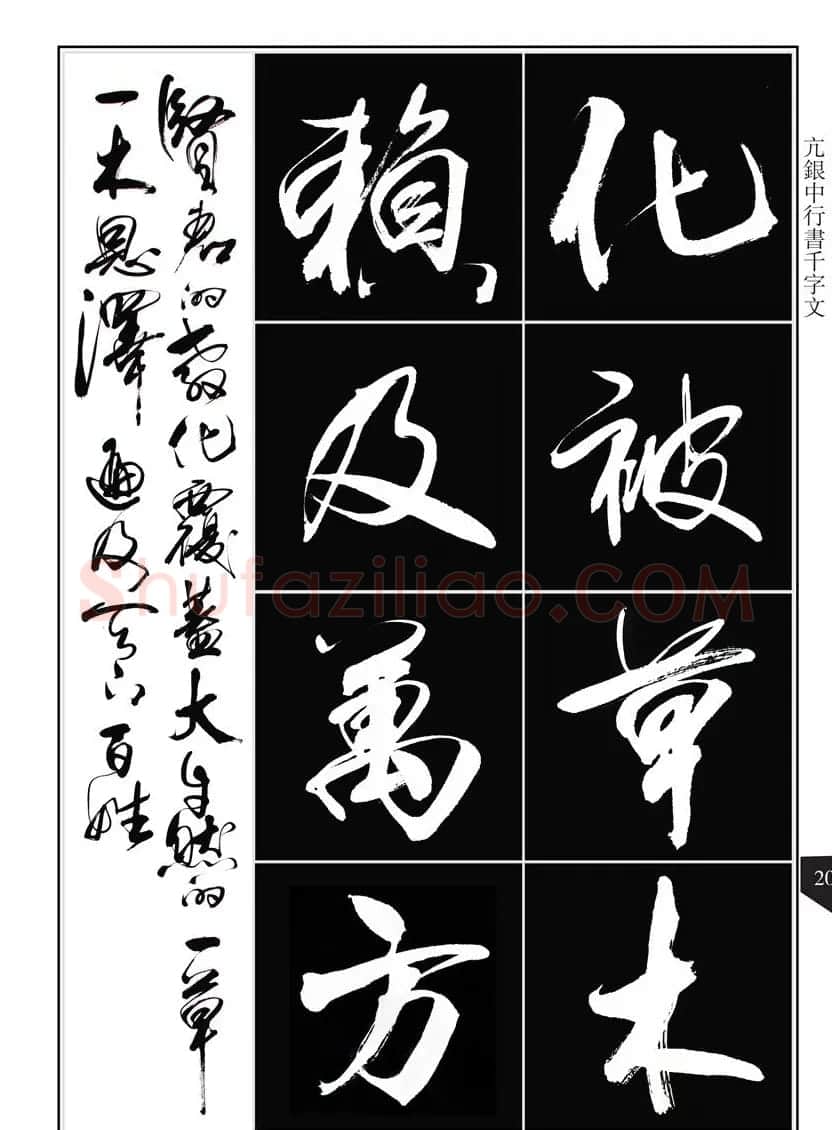 亢銀中行書千字文
化被草木
賴及萬方
賢君的教化覆蓋大自然的一草
一木恩澤遍及天下百姓
20
Shufaziliao.COM